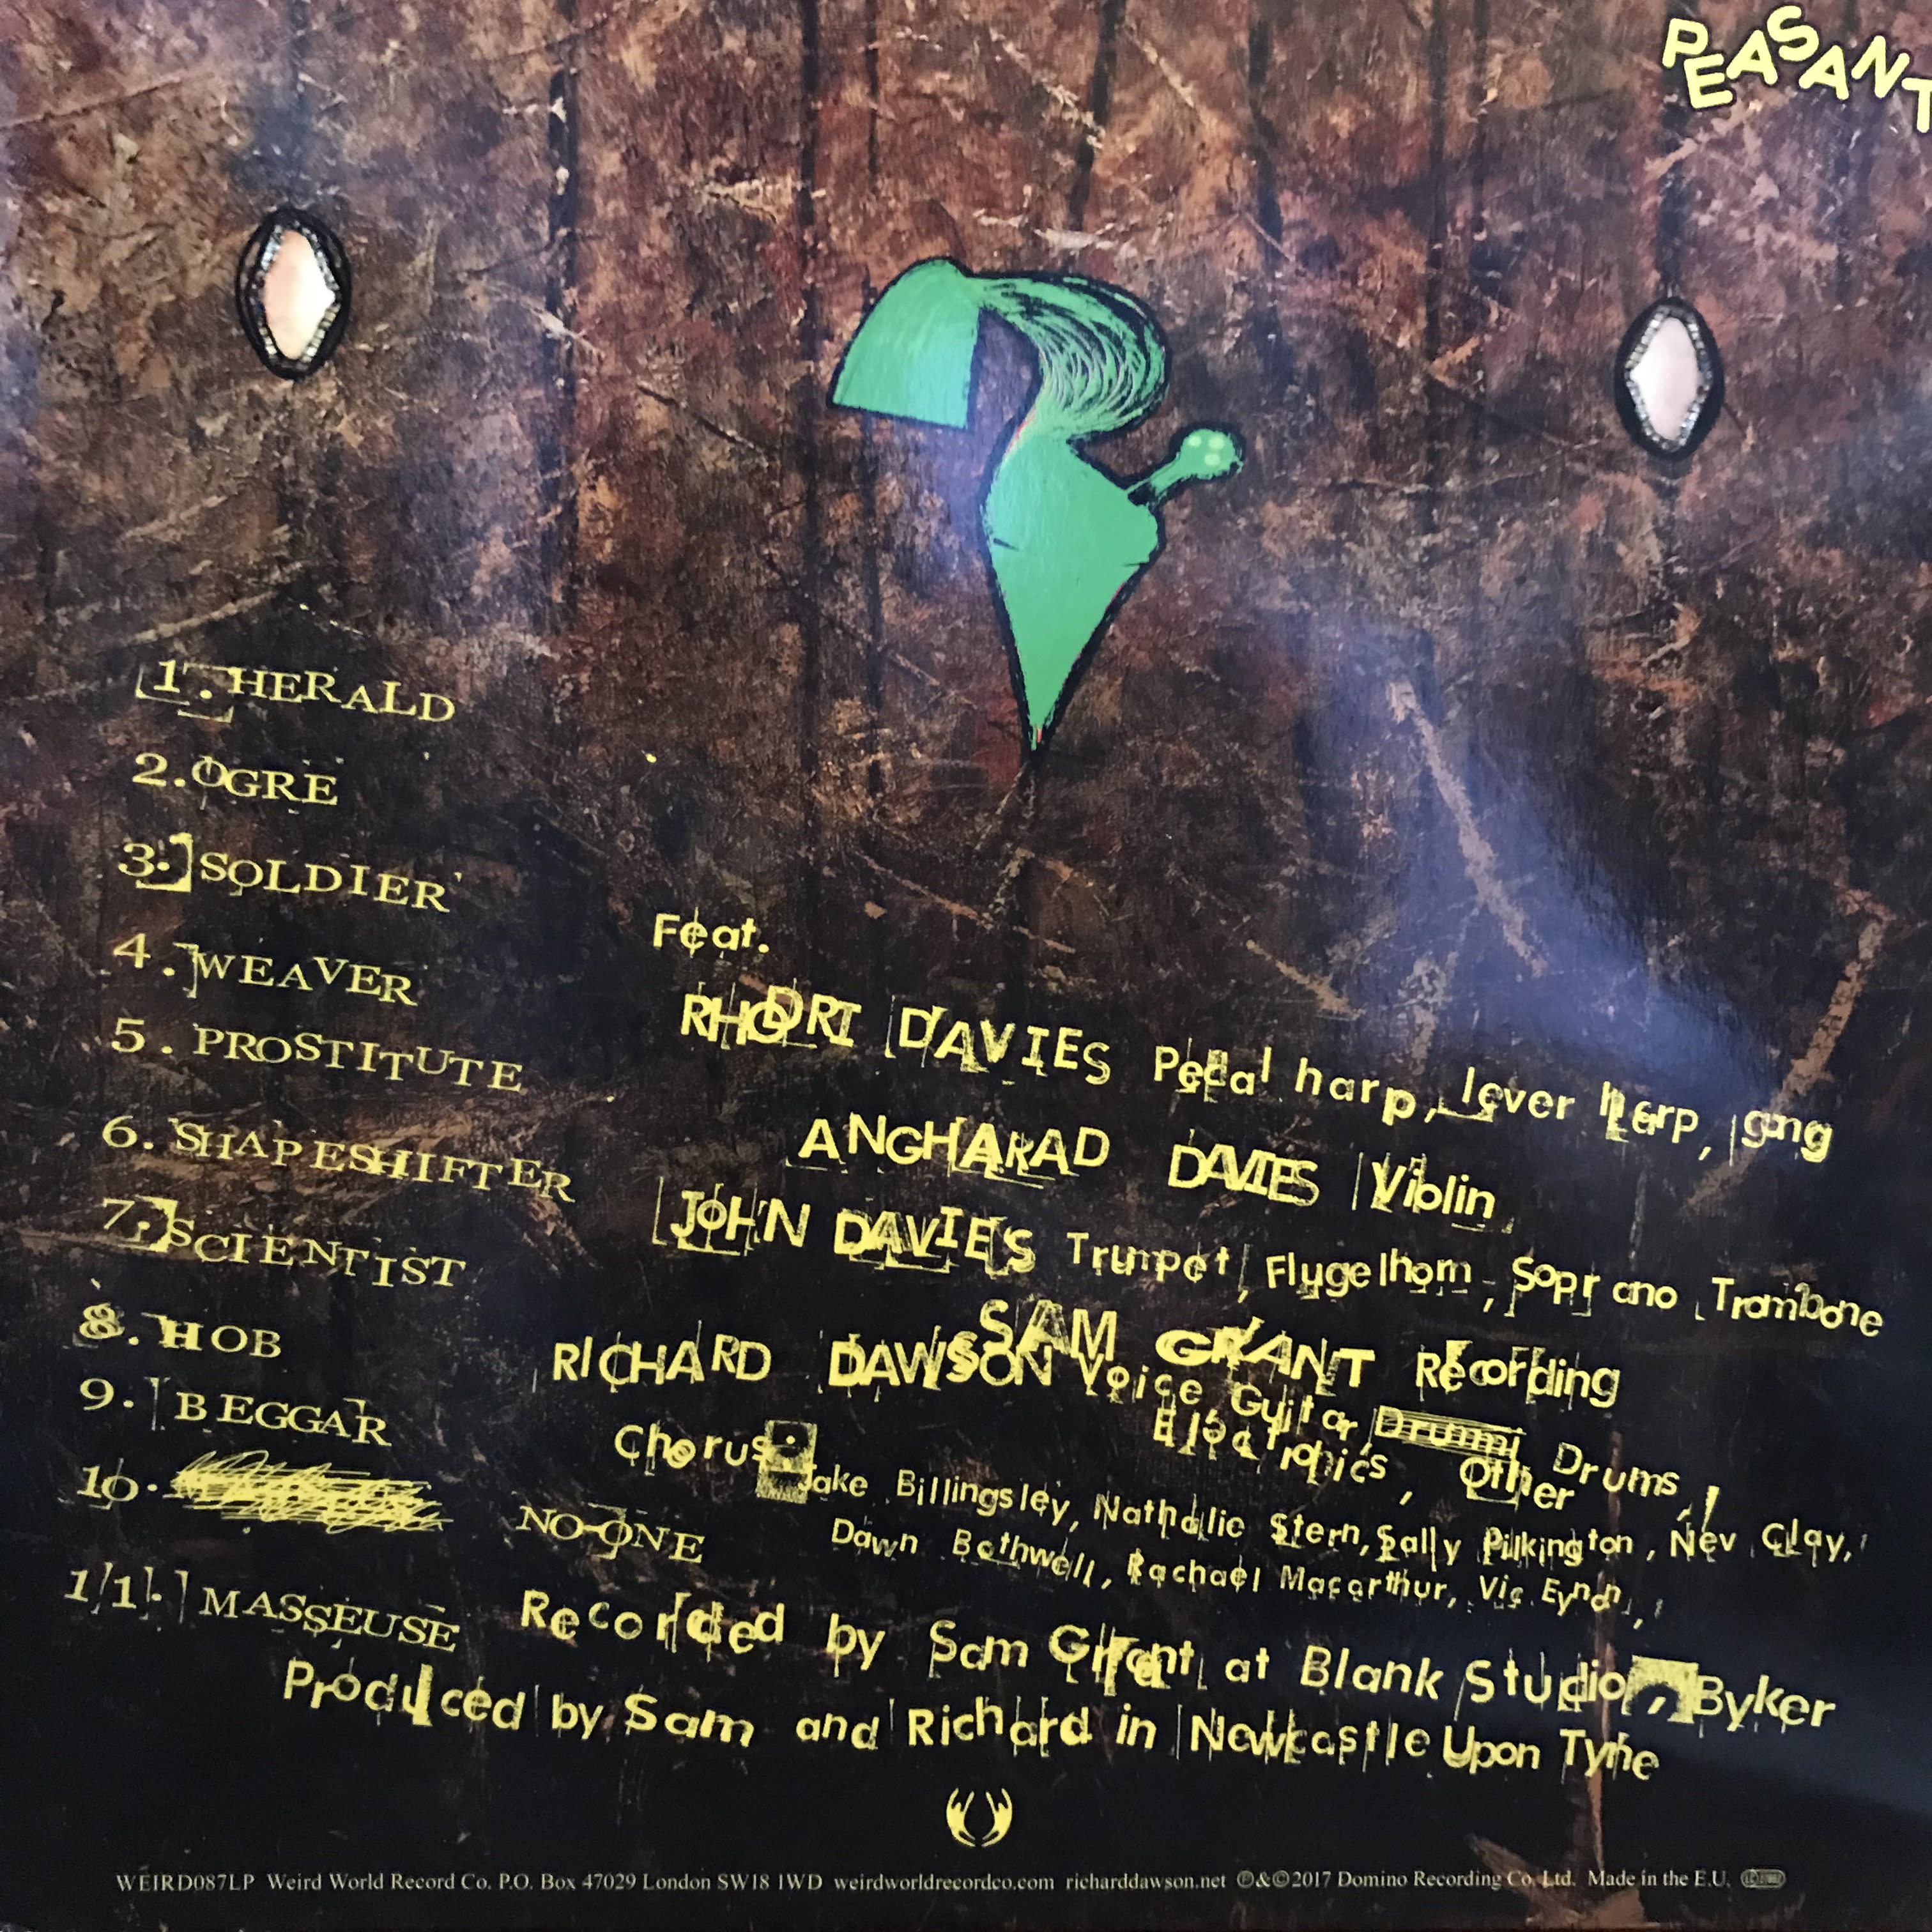 PEASANT
1. HERALD
2. OGRE
3. SOLDIER
4. WEAVER
5. PROSTITUTE
6. SHAPESHIFTER
7. SCIENTIST
8. HOB
9. BEGGAR
10. NO-ONE
11. MASSEUSE
Feat.
RHODRI DAVIES Pedal harp, lever harp, gong
ANGHARAD DAVIES Violin
JOHN DAVIES Trumpet, Flugelhorn, Soprano Trombone
SAM GRANT Recording
RICHARD DAWSON Voice, Guitar, Drums, Drums,
Electronics, Other
Chorus: Jake Billingsley, Nathalie Stern, Sally Pilkington, Nev Clay,
Dawn Bothwell, Rachael Macarthur, Vic
Recorded by Sam Grant at Blank Studio, Byker
Produced by Sam and Richard in Newcastle Upon Tyne
WEIRD087LP Weird World Record Co. P.O. Box 47029 London SW18 1WD weirdworldrecordco.com richarddawson.net ℗&©2017 Domino Recording Co. Ltd. Made in the E.U.